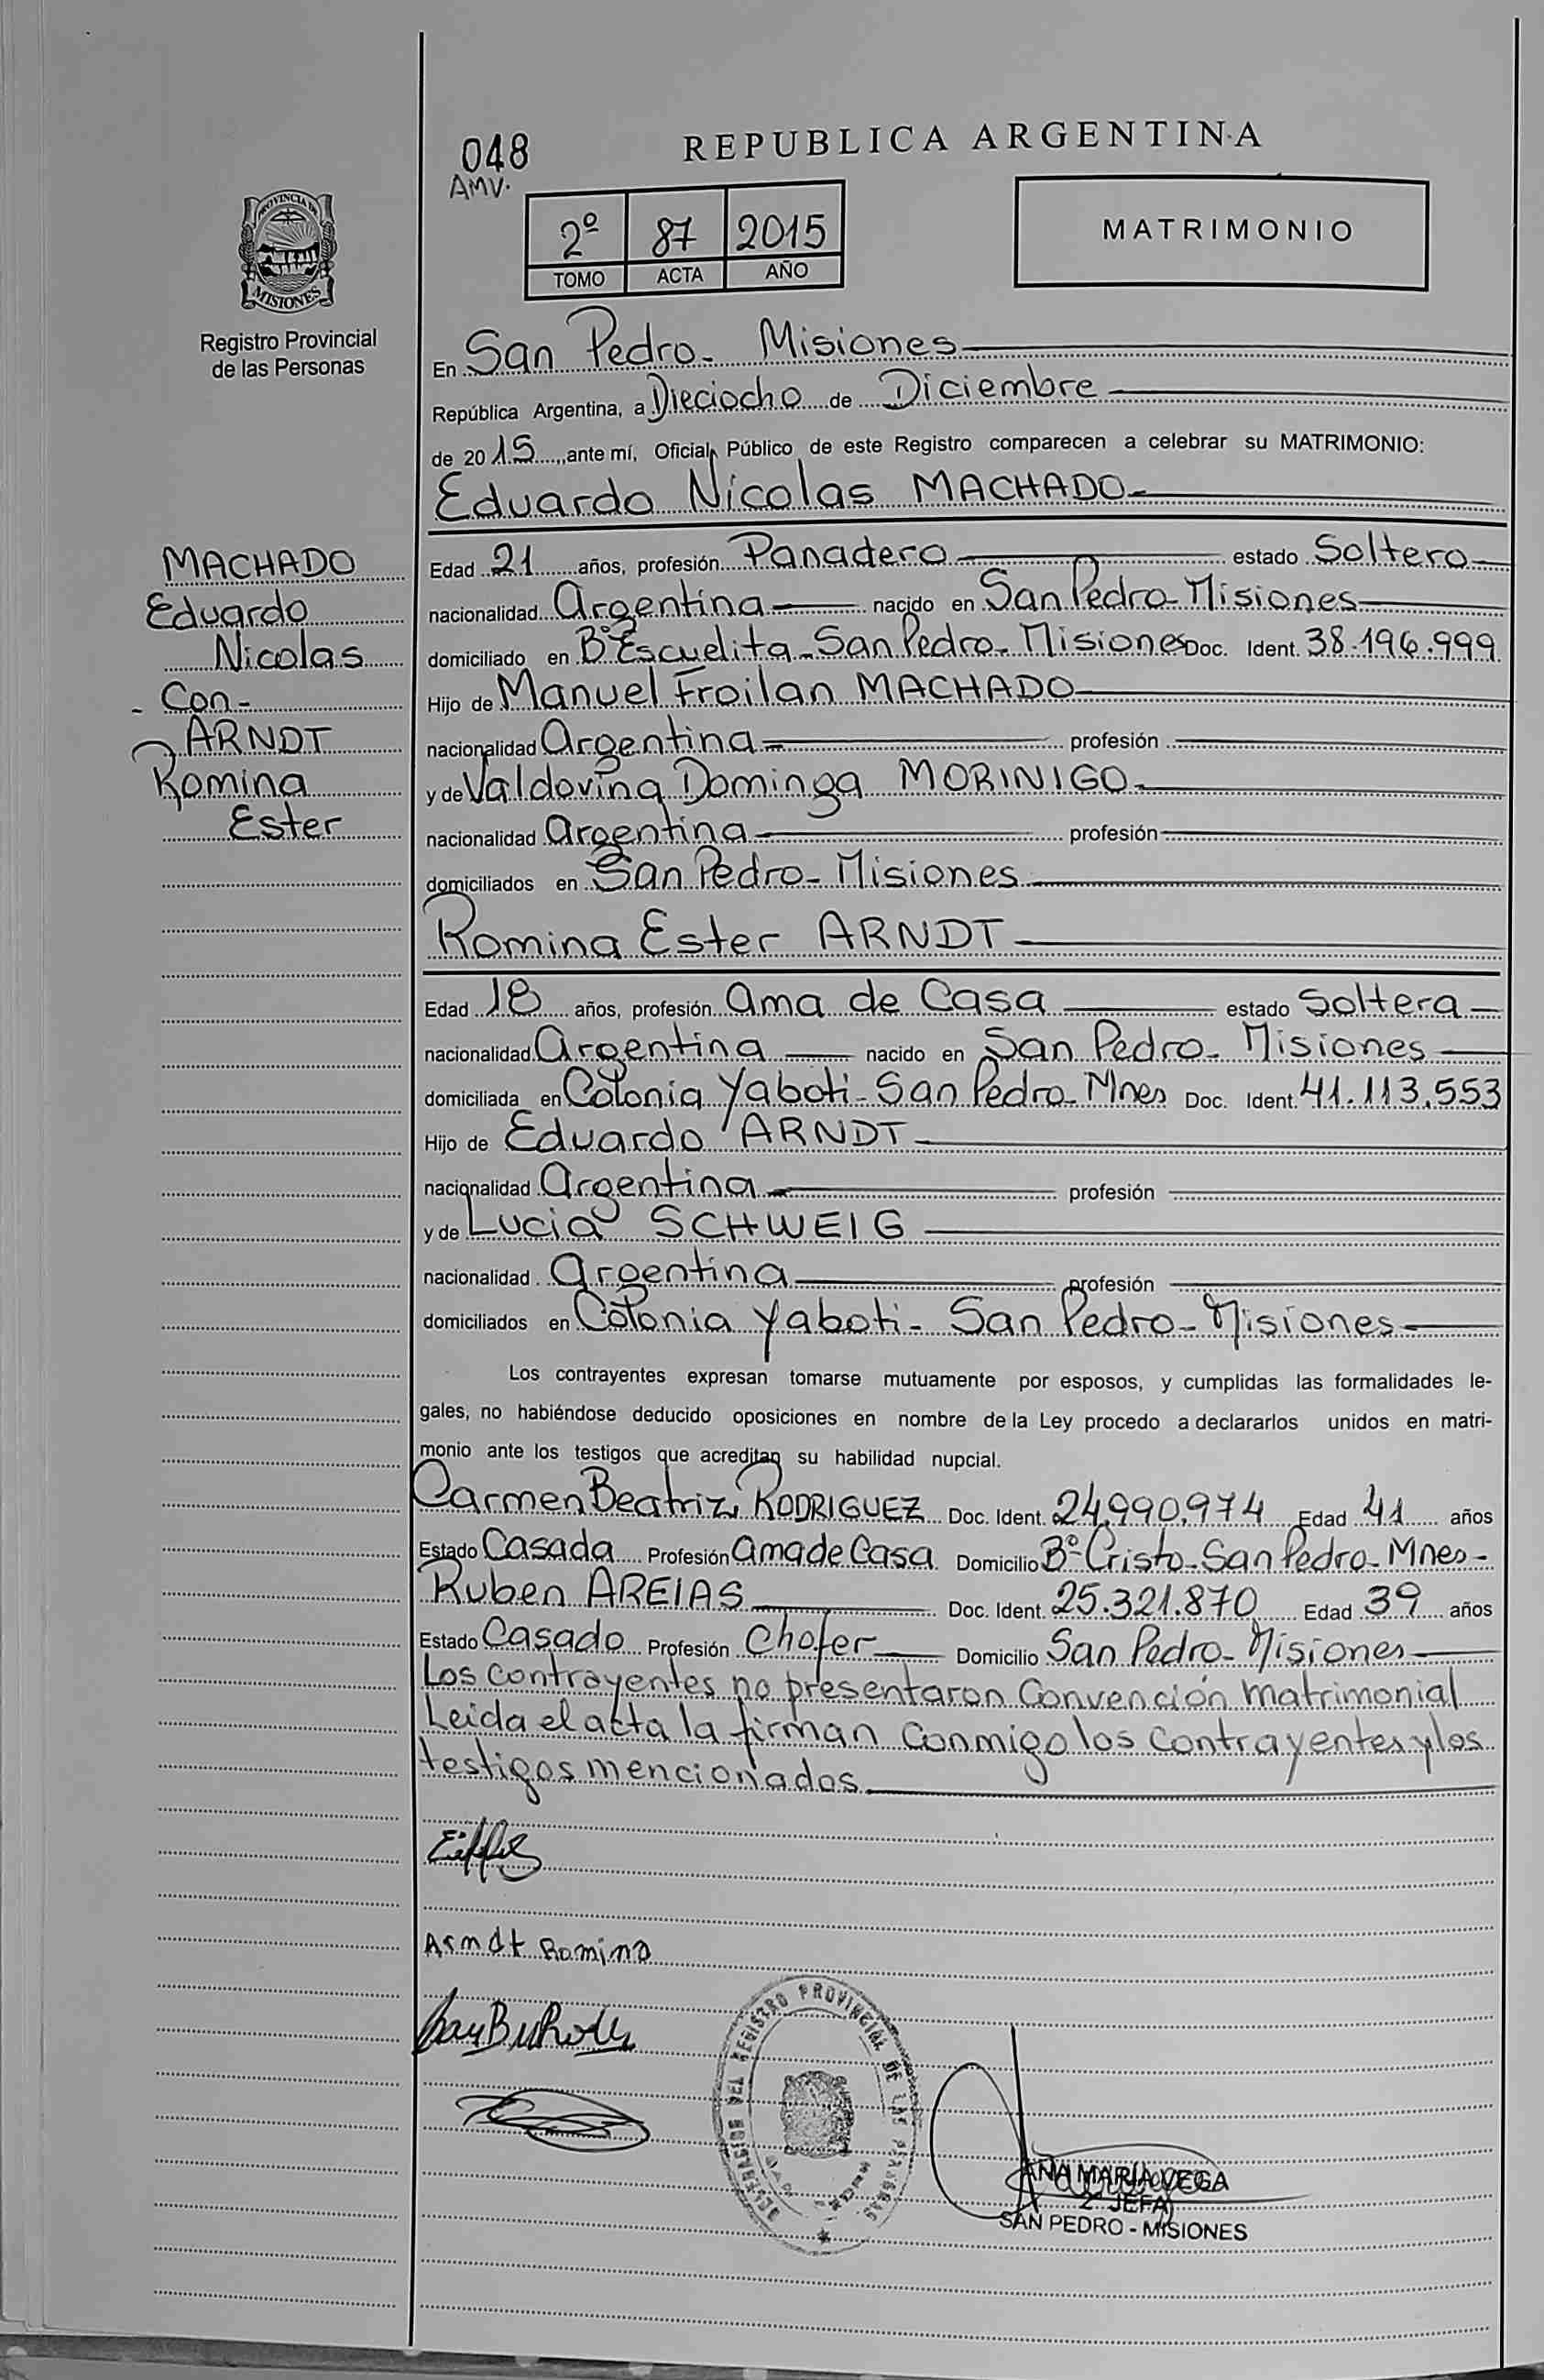 REPUBLICA ARGENTINA
048
AMV.
2º 87 2015
TOMO ACTA AÑO
MATRIMONIO
PROVINCIA DE
MISIONES
Registro Provincial
de las Personas
En San Pedro - Misiones
República Argentina, a Dieciocho de Diciembre
de 2015, ante mí, Oficial Público de este Registro comparecen a celebrar su MATRIMONIO:
Eduardo Nicolas MACHADO
MACHADO
Eduardo
Nicolas
- Con -
ARNDT
Romina
Ester
Edad 21 años, profesión Panadero estado Soltero
nacionalidad Argentina nacido en San Pedro - Misiones
domiciliado en Bº Escuelita - San Pedro - Misiones Doc. Ident. 38.196.999
Hijo de Manuel Froilan MACHADO
nacionalidad Argentina profesión
y de Valdovina Dominga MORINIGO
nacionalidad Argentina profesión
domiciliados en San Pedro - Misiones
Romina Ester ARNDT
Edad 18 años, profesión Ama de Casa estado Soltera
nacionalidad Argentina nacido en San Pedro - Misiones
domiciliada en Colonia Yaboti - San Pedro - Mnes Doc. Ident. 41.113.553
Hijo de Eduardo ARNDT
nacionalidad Argentina profesión
y de Lucia SCHWEIG
nacionalidad Argentina profesión
domiciliados en Colonia Yaboti - San Pedro - Misiones
Los contrayentes expresan tomarse mutuamente por esposos, y cumplidas las formalidades le-
gales, no habiéndose deducido oposiciones en nombre de la Ley procedo a declararlos unidos en matri-
monio ante los testigos que acreditan su habilidad nupcial.
Carmen Beatriz RODRIGUEZ Doc. Ident. 24.990.974 Edad 41 años
Estado Casada Profesión ama de Casa Domicilio Bº Cristo - San Pedro - Mnes -
Ruben AREIAS Doc. Ident. 25.321.870 Edad 39 años
Estado Casado Profesión Chofer Domicilio San Pedro - Misiones
Los contrayentes no presentaron Convención matrimonial
Leida el acta la firman conmigo los contrayentes y los
testigos mencionados
Arndt Romina
REGISTRO PROVINCIAL DE LAS PERSONAS
ANA MARIA VEGA
2º JEFA
SAN PEDRO - MISIONES